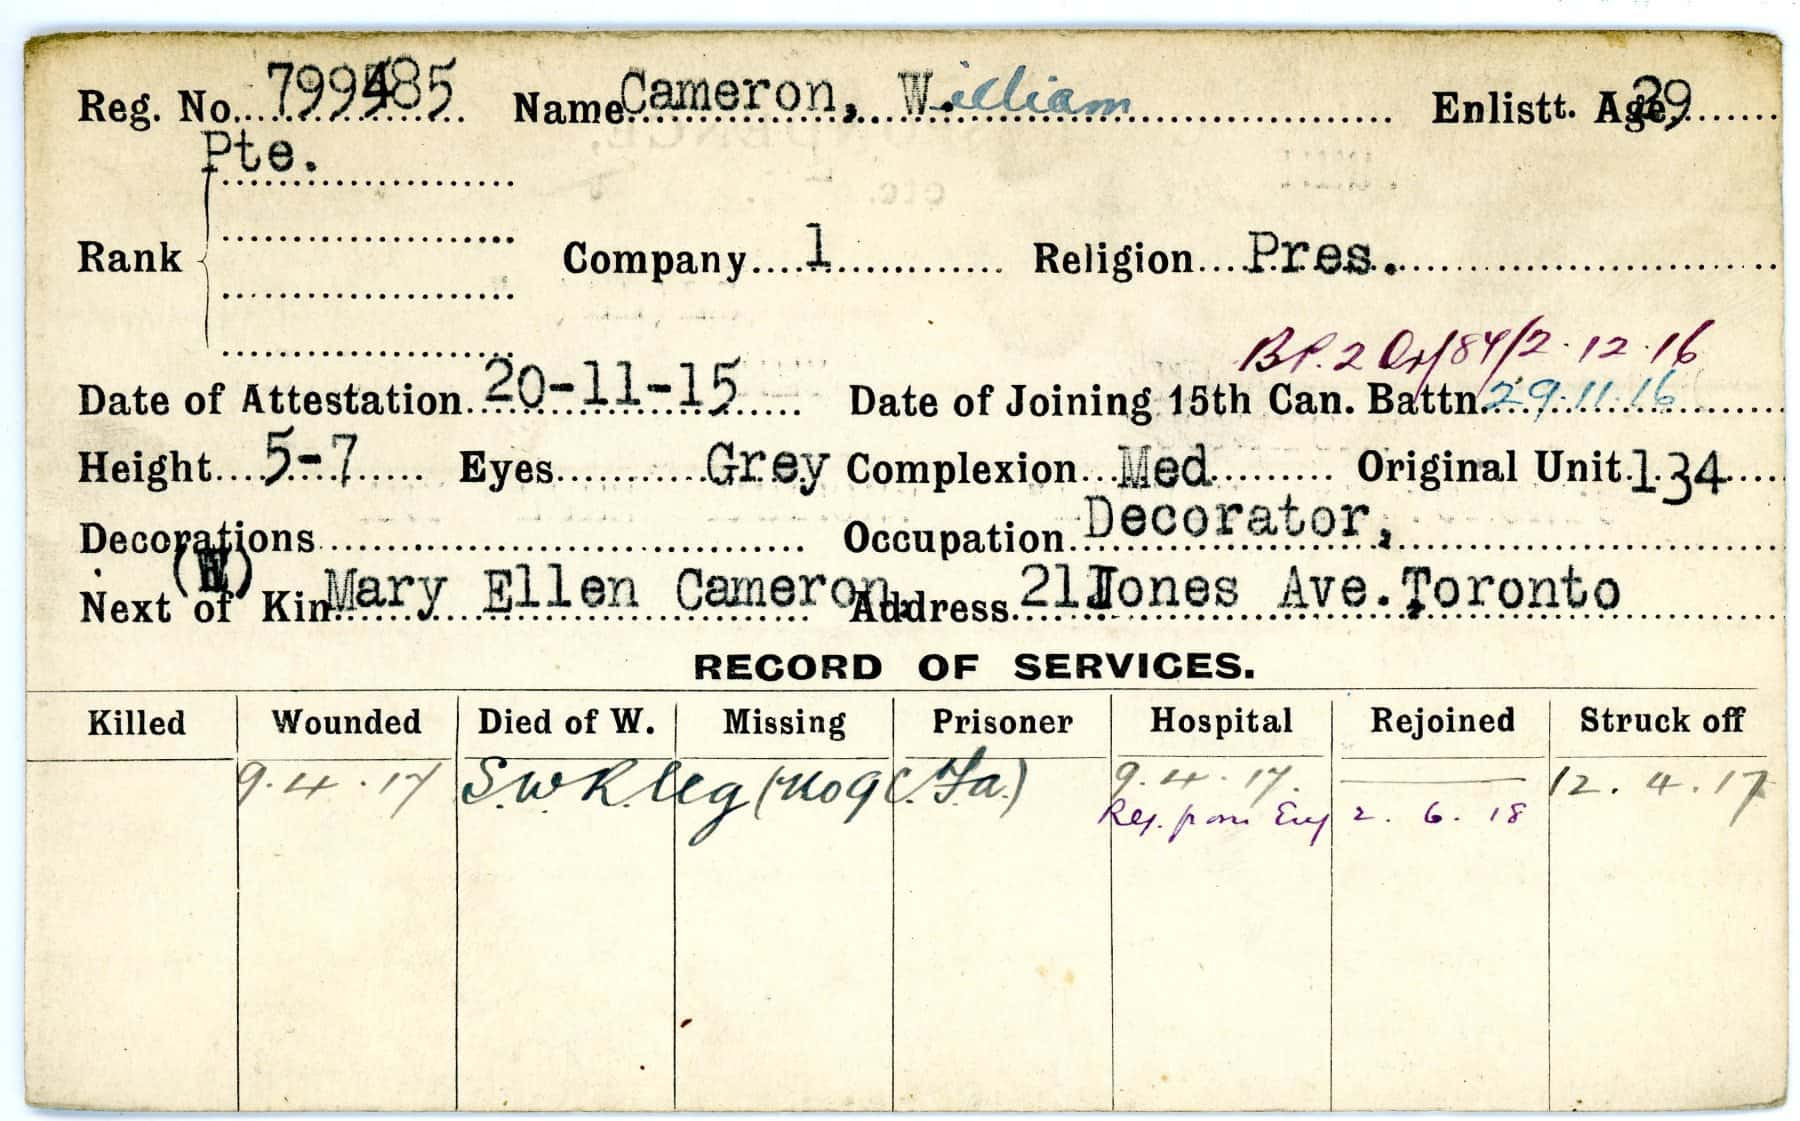 Reg. No. 799485 Name Cameron, William Enlistt. Age 29
Pte.
Rank Company 1 Religion Pres.
B.P. 2 84/2.12.16
Date of Attestation 20-11-15 Date of Joining 15th Can. Battn. 29.11.16
Height 5-7 Eyes Grey Complexion Med Original Unit 134
Decorations Occupation Decorator,
(W)
Next of Kin Mary Ellen Cameron, Address 21 Jones Ave. Toronto
RECORD OF SERVICES.
Killed Wounded Died of W. Missing Prisoner Hospital Rejoined Struck off
9.4.17 S.W. R. Leg (No 9 C. Fa.) 9.4.17. 12.4.17
from Eng 2.6.18